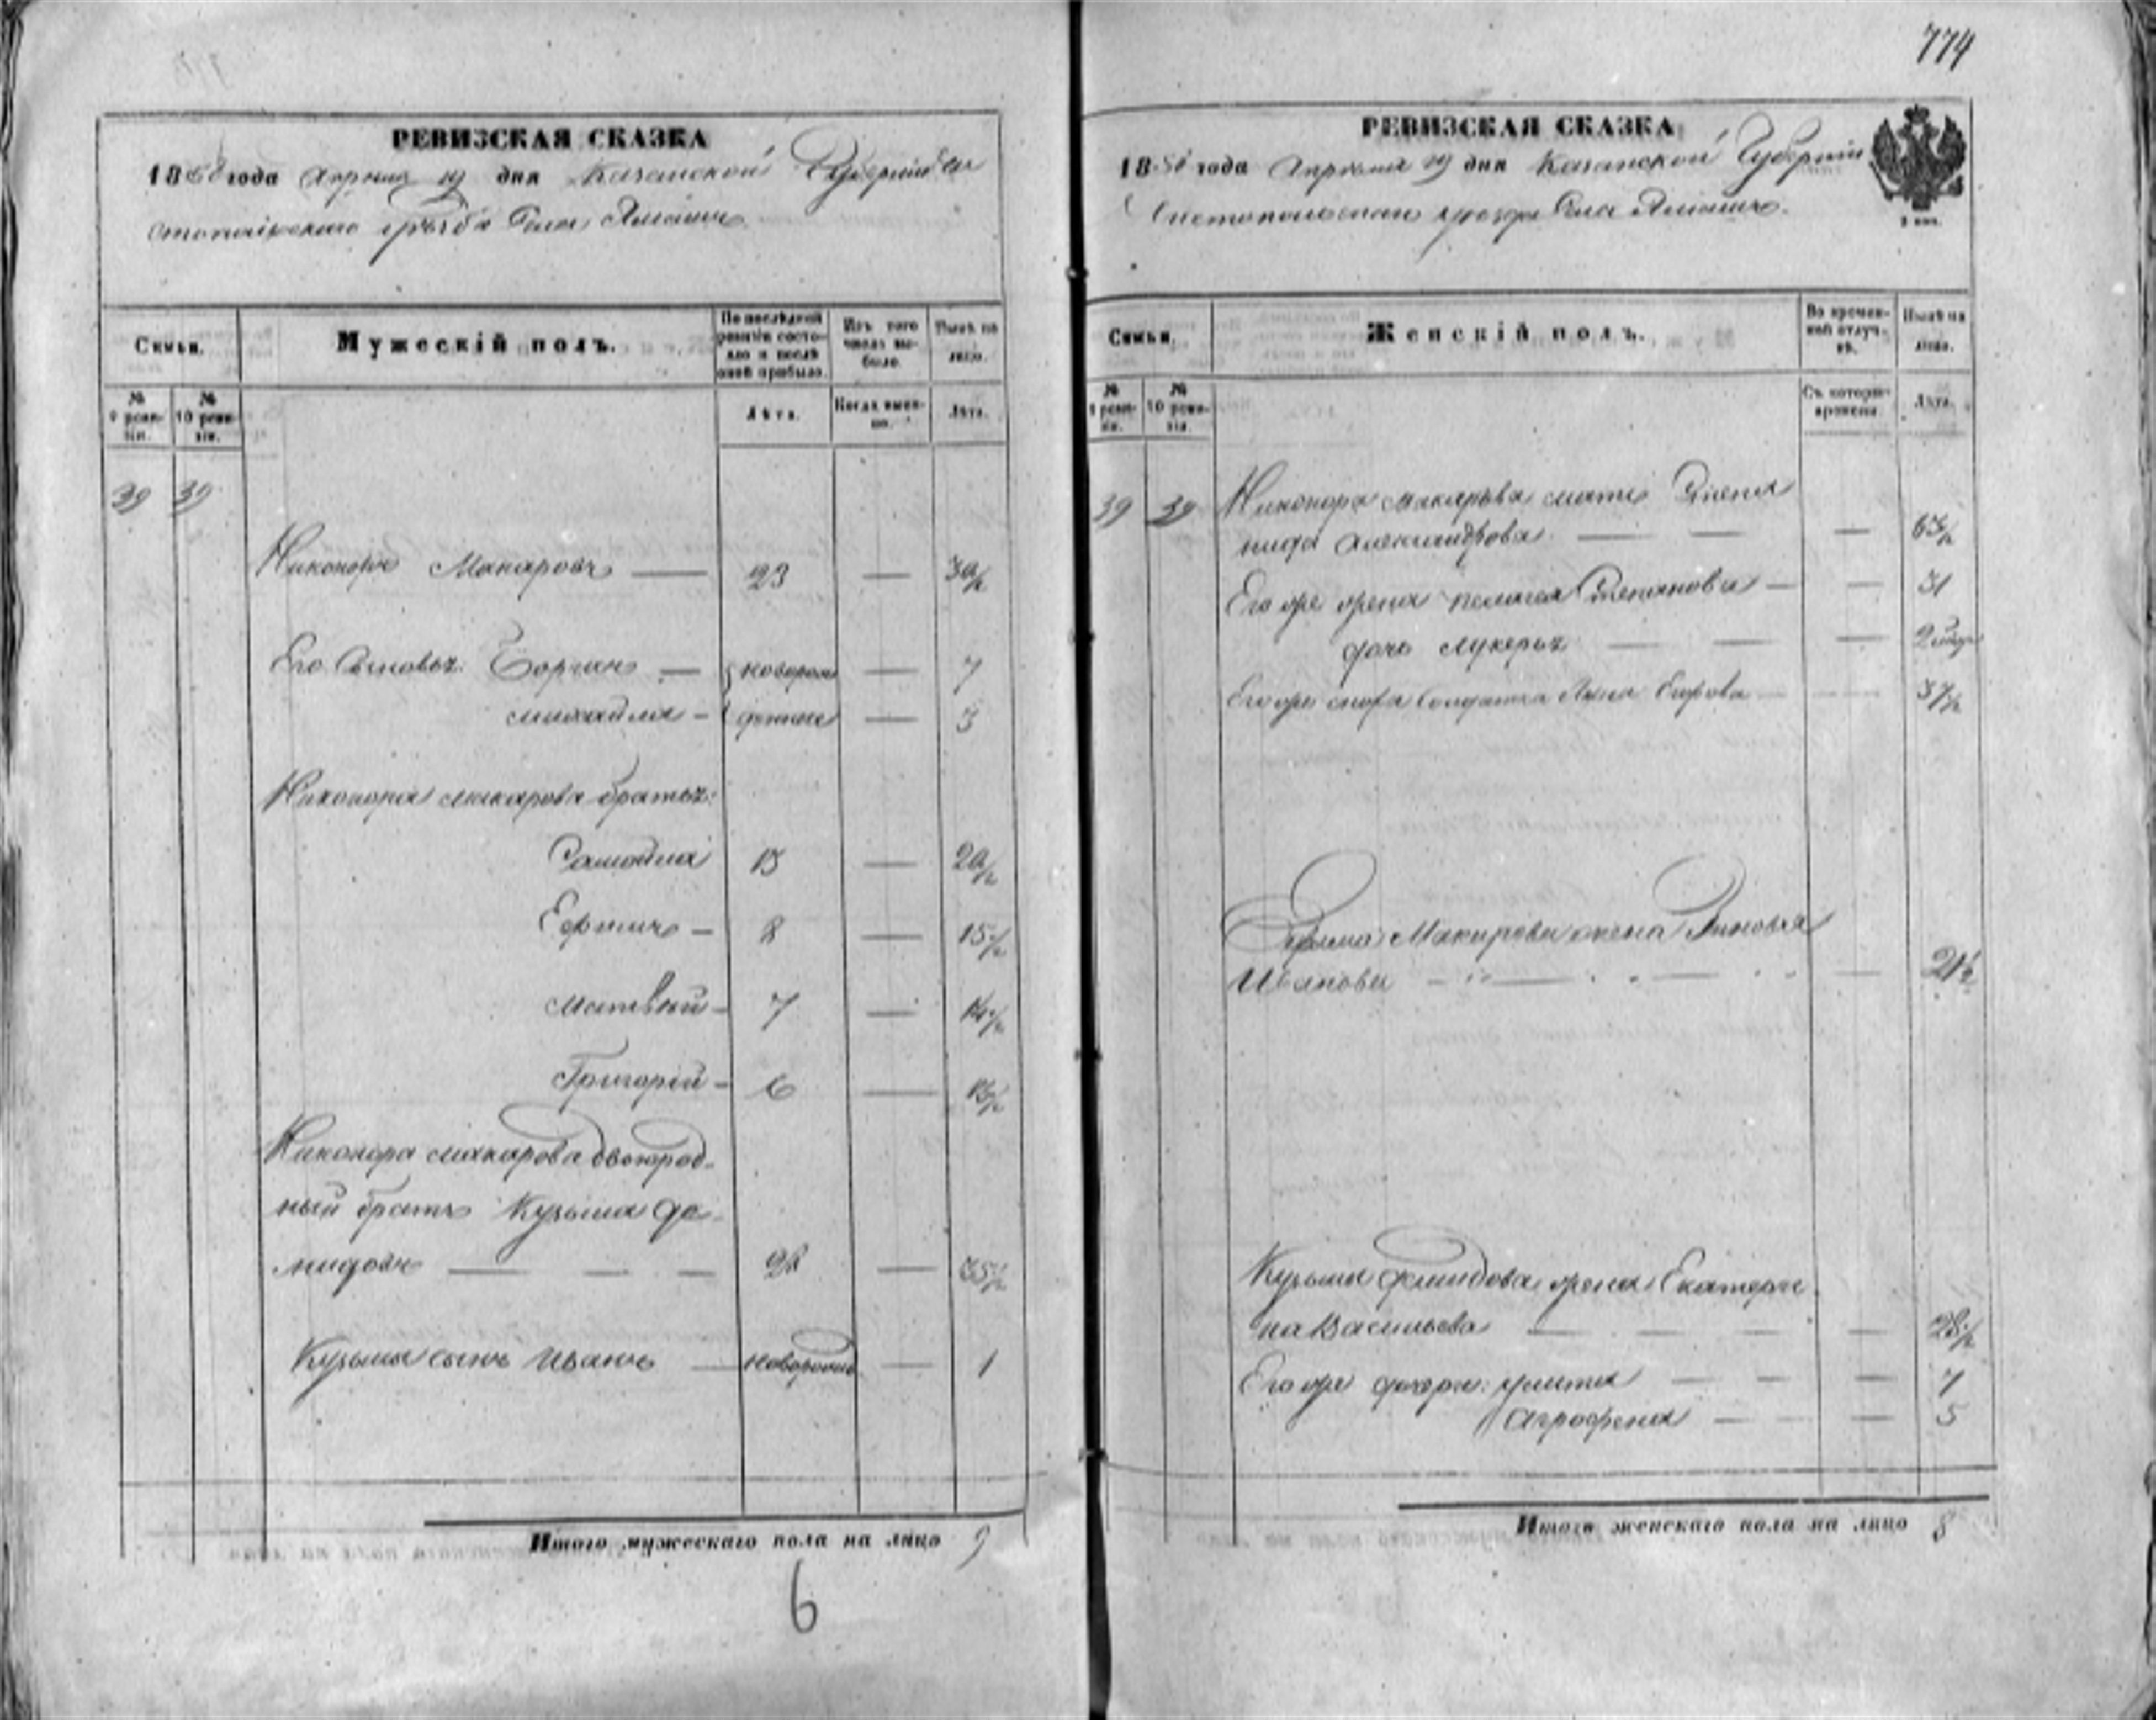 774
РЕВИЗСКАЯ СКАЗКА
1858 года Апреля 19 дня Казанской Губерніи Чи
стопольскаго уѣзда Села
Семьи.
Мужескій полъ.
По послѣдней ревизіи состояло и послѣ оной прибыло.
Изъ того числа выбыло.
Нынѣ на лицо.
№ 9 ревизіи.
№ 10 ревизіи.
Лѣта.
Когда именно.
Лѣта.
39 39
Никоноръ Макаровъ — 23 — 30½
Его Сыновья: — новорож — 7
михайла — денные — 3
Никонора макарова братья:
Самойла 13 — 20½
Ефимъ — 8 — 15½
матвѣй — 7 — 14½
Григорій — 6 — 13½
Никонора макарова двоюрод-
ный братъ Кузьма де-
мидовъ — — — 28 — 35½
Кузьмы сынъ Иванъ — новорожд — 1
Итого мужескаго пола на лицо 9
6
РЕВИЗСКАЯ СКАЗКА
1858 года Апреля 19 дня Казанской Губерніи
Чистопольскаго уѣзда Села
2 коп.
Семьи.
Женскій полъ.
Во временной отлучкѣ.
Нынѣ на лицо.
№ 9 ревизіи.
№ 10 ревизіи.
Съ котораго времени.
Лѣта.
39 39 Никонора макарова мать
нида Александрова — — — 63½
Его же жена пелагея Степанова — — 31
дочь лукерья — — — 2
Его же сноха солдатка Анна Егорова — — 37½
Ефима Макарова жена Зиновья
Иванова — — — 21½
Кузьмы демидова жена Екатери
на Васильева — — — — — 28½
Его же дочери: улита — — — — 7
Аграфена — — — 5
Итого женскаго пола на лицо 8